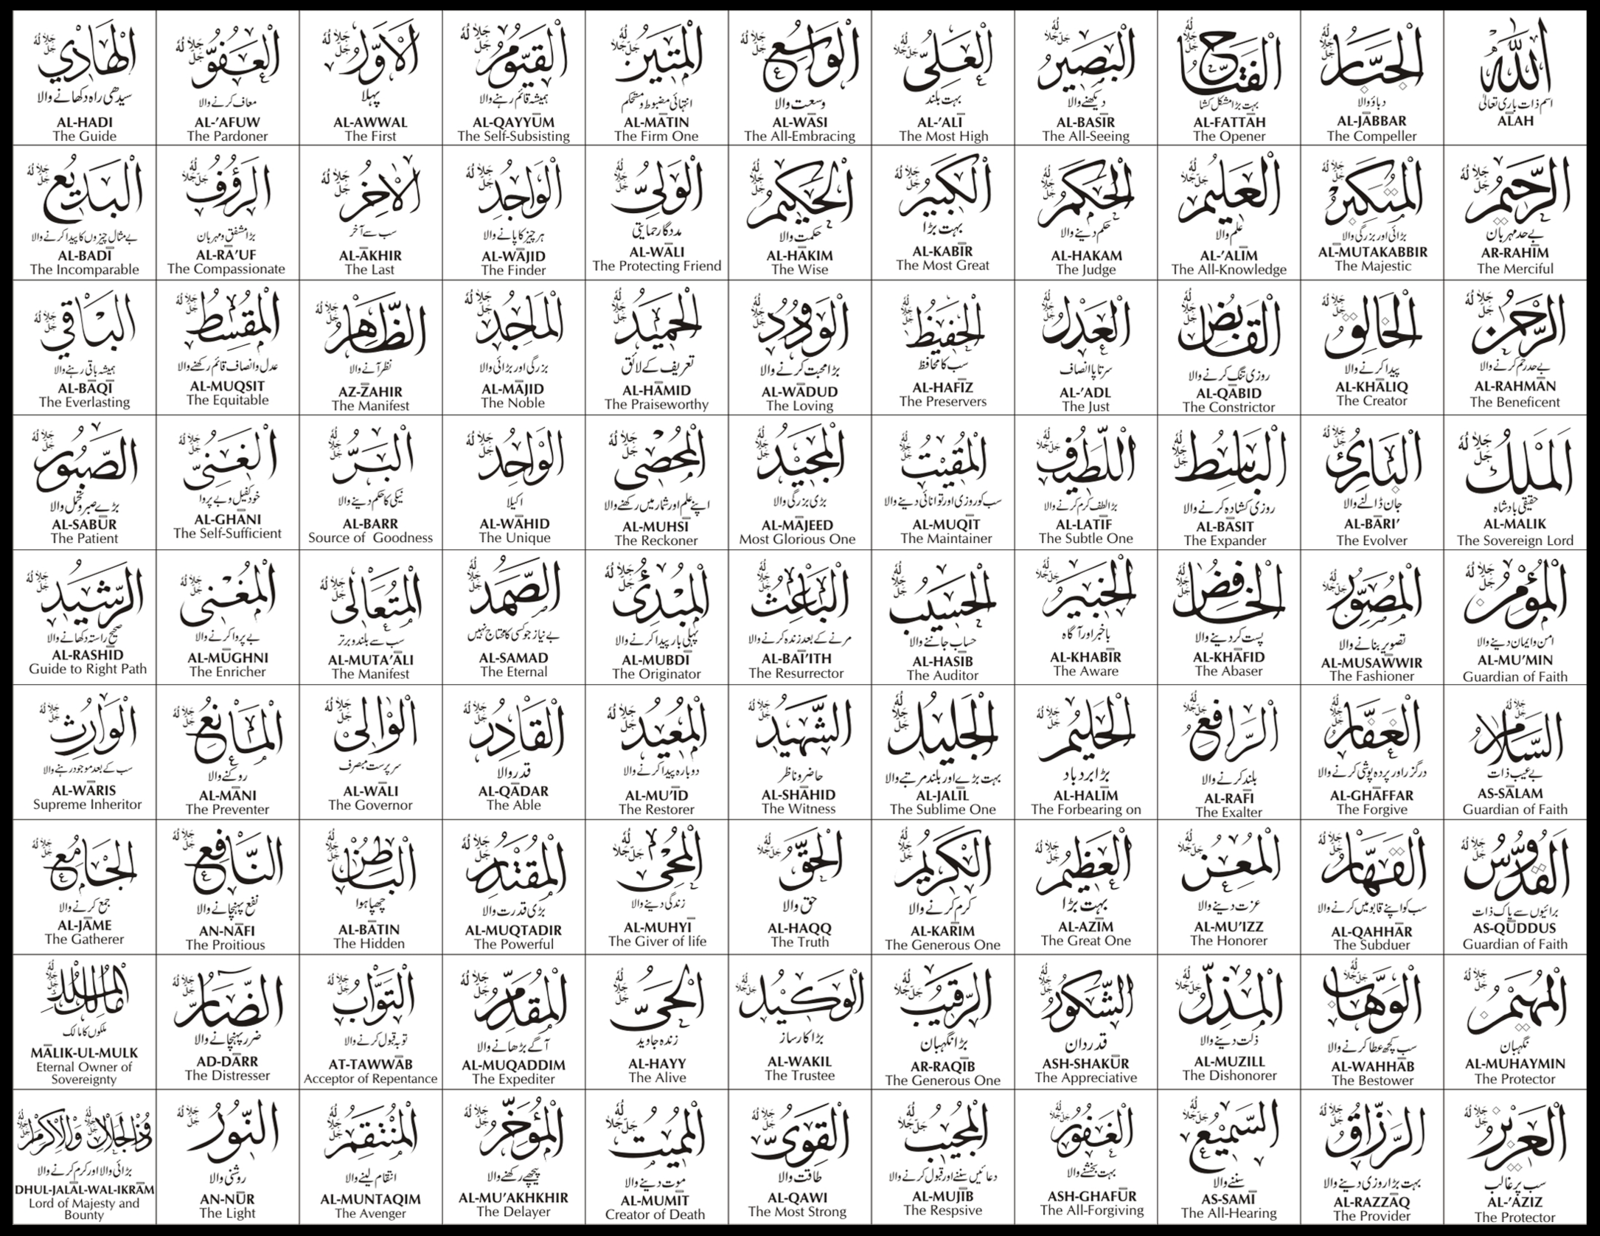 اللّٰه
اسم ذات باری تعالیٰ
ĀLAH
الرَّحِيْمُ جل جلاله
بے حد مہربان
AR-RAHĪM
The Merciful
الرَّحْمٰنُ جل جلاله
بے حد رحم کرنے والا
AL-RAHMĀN
The Beneficent
الْمَلِكُ جل جلاله
حقیقی بادشاہ
AL-MALIK
The Sovereign Lord
الْمُؤْمِنُ جل جلاله
امن و ایمان دینے والا
AL-MU’MIN
Guardian of Faith
السَّلَامُ جل جلاله
بے عیب ذات
AS-SĀLAM
Guardian of Faith
الْقُدُّوْسُ جل جلاله
برائیوں سے پاک ذات
AS-QŪDDUS
Guardian of Faith
الْمُهَيْمِنُ جل جلاله
نگہبان
AL-MUHAYMIN
The Protector
الْعَزِيْزُ جل جلاله
سب پر غالب
AL-’ĀZIZ
The Protector
الْجَبَّارُ جل جلاله
دباؤ والا
AL-JĀBBAR
The Compeller
الْمُتَكَبِّرُ جل جلاله
بڑائی اور بزرگی والا
AL-MUTAKABBIR
The Majestic
الْخَالِقُ جل جلاله
پیدا کرنے والا
AL-KHĀLIQ
The Creator
الْبَارِئُ جل جلاله
جان ڈالنے والا
AL-BĀRI’
The Evolver
الْمُصَوِّرُ جل جلاله
تصویر بنانے والا
AL-MUSAWWIR
The Fashioner
الْغَفَّارُ جل جلاله
درگزر اور پردہ پوشی کرنے والا
AL-GHĀFFAR
The Forgive
الْقَهَّارُ جل جلاله
سب کو اپنے قابو میں کرنے والا
AL-QAHHĀR
The Subduer
الْوَهَّابُ جل جلاله
سب کچھ عطا کرنے والا
AL-WAHHĀB
The Bestower
الرَّزَّاقُ جل جلاله
بہت بڑا روزی دینے والا
AL-RAZZĀQ
The Provider
الْفَتَّاحُ جل جلاله
بہت بڑا مشکل کشا
AL-FATTĀH
The Opener
الْعَلِيْمُ جل جلاله
علم والا
AL-’ALĪM
The All-Knowledge
الْقَابِضُ جل جلاله
روزی تنگ کرنے والا
AL-QĀBID
The Constrictor
الْبَاسِطُ جل جلاله
روزی کشادہ کرنے والا
AL-BĀSIT
The Expander
الْخَافِضُ جل جلاله
پست کر دینے والا
AL-KHĀFID
The Abaser
الرَّافِعُ جل جلاله
بلند کرنے والا
AL-RAFĪ
The Exalter
الْمُعِزُّ جل جلاله
عزت دینے والا
AL-MU’IZZ
The Honorer
الْمُذِلُّ جل جلاله
ذلت دینے والا
AL-MUZILL
The Dishonorer
السَّمِيْعُ جل جلاله
سننے والا
AS-SAMĪ
The All-Hearing
الْبَصِيْرُ جل جلاله
دیکھنے والا
AL-BASĪR
The All-Seeing
الْحَكَمُ جل جلاله
حکم دینے والا
AL-HAKAM
The Judge
الْعَدْلُ جل جلاله
سرتاپا انصاف
AL-’ADL
The Just
اللَّطِيْفُ جل جلاله
بڑا لطف کرم کرنے والا
AL-LATĪF
The Subtle One
الْخَبِيْرُ جل جلاله
باخبر اور آگاہ
AL-KHABĪR
The Aware
الْحَلِيْمُ جل جلاله
بڑا بردباد
AL-HALĪM
The Forbearing on
الْعَظِيْمُ جل جلاله
بہت بڑا
AL-AZĪM
The Great One
الشَّكُوْرُ جل جلاله
قدردان
ASH-SHAKŪR
The Appreciative
الْغَفُوْرُ جل جلاله
بہت بخشنے والا
ASH-GHAFŪR
The All-Forgiving
الْعَلِىُّ جل جلاله
بہت بلند
AL-’ALĪ
The Most High
الْكَبِيْرُ جل جلاله
بہت بڑا
AL-KABĪR
The Most Great
الْحَفِيْظُ جل جلاله
سب کا محافظ
AL-HAFĪZ
The Preservers
الْمُقِيْتُ جل جلاله
سب کو روزی اور توانائی دینے والا
AL-MUQĪT
The Maintainer
الْحَسِيْبُ جل جلاله
حساب جاننے والا
AL-HASĪB
The Auditor
الْجَلِيْلُ جل جلاله
بہت بڑے اور بلند مرتبے والا
AL-JALĪL
The Sublime One
الْكَرِيْمُ جل جلاله
کرم کرنے والا
AL-KARĪM
The Generous One
الرَّقِيْبُ جل جلاله
بڑا نگہبان
AR-RAQĪB
The Generous One
الْمُجِيْبُ جل جلاله
دعائیں سننے اور قبول کرنے والا
AL-MUJĪB
The Respsive
الْوَاسِعُ جل جلاله
وسعت والا
AL-WĀSI
The All-Embracing
الْحَكِيْمُ جل جلاله
حکمت والا
AL-HĀKIM
The Wise
الْوَدُوْدُ جل جلاله
بڑا محبت کرنے والا
AL-WĀDUD
The Loving
الْمَجِيْدُ جل جلاله
بڑی بزرگی والا
AL-MĀJEED
Most Glorious One
الْبَاعِثُ جل جلاله
مرنے کے بعد زندہ کرنے والا
AL-BAĪ’ITH
The Resurrector
الشَّهِيْدُ جل جلاله
حاضر و ناظر
AL-SHĀHID
The Witness
الْحَقُّ جل جلاله
حق والا
AL-HAQQ
The Truth
الْوَكِيْلُ جل جلاله
بڑا کارساز
AL-WAKIL
The Trustee
الْقَوِىُّ جل جلاله
طاقت والا
AL-QAWI
The Most Strong
الْمَتِيْنُ جل جلاله
انتہائی مضبوط و مستحکم
AL-MĀTIN
The Firm One
الْوَلِىُّ جل جلاله
مددگار حمایتی
AL-WĀLI
The Protecting Friend
الْحَمِيْدُ جل جلاله
تعریف کے لائق
AL-HĀMID
The Praiseworthy
الْمُحْصِى جل جلاله
اپنے علم اور شمار میں رکھنے والا
AL-MUHSĪ
The Reckoner
الْمُبْدِئُ جل جلاله
پہلی بار پیدا کرنے والا
AL-MUBDĪ
The Originator
الْمُعِيْدُ جل جلاله
دوبارہ پیدا کرنے والا
AL-MU’ĪD
The Restorer
الْمُحْيِى جل جلاله
زندگی دینے والا
AL-MUHYĪ
The Giver of life
الْحَىُّ جل جلاله
زندہ جاوید
AL-HAYY
The Alive
الْمُمِيْتُ جل جلاله
موت دینے والا
AL-MUMĪT
Creator of Death
الْقَيُّوْمُ جل جلاله
ہمیشہ قائم رہنے والا
AL-QAYYŪM
The Self-Subsisting
الْوَاجِدُ جل جلاله
ہر چیز کا پانے والا
AL-WĀJID
The Finder
الْمَاجِدُ جل جلاله
بزرگی اور بڑائی والا
AL-MĀJID
The Noble
الْوَاحِدُ جل جلاله
اکیلا
AL-WĀHID
The Unique
الصَّمَدُ جل جلاله
بے نیاز جو کسی کا محتاج نہیں
AL-SAMAD
The Eternal
الْقَادِرُ جل جلاله
قدر والا
AL-QĀDAR
The Able
الْمُقْتَدِرُ جل جلاله
بڑی قدرت والا
AL-MUQTADIR
The Powerful
الْمُقَدِّمُ جل جلاله
آگے بڑھانے والا
AL-MUQADDIM
The Expediter
الْمُؤَخِّرُ جل جلاله
پیچھے رکھنے والا
AL-MU’AKHKHIR
The Delayer
الْاَوَّلُ جل جلاله
پہلا
AL-AWWAL
The First
الْاٰخِرُ جل جلاله
سب سے آخر
AL-ĀKHIR
The Last
الظَّاهِرُ جل جلاله
نظر آنے والا
AZ-ZĀHIR
The Manifest
الْبَرُّ جل جلاله
نیکی کا حکم دینے والا
AL-BARR
Source of Goodness
الْمُتَعَالِى جل جلاله
سب سے بلند و برتر
AL-MUTA’ĀLI
The Manifest
الْوَالِى جل جلاله
سرپرست مبصرف
AL-WĀLI
The Governor
الْبَاطِنُ جل جلاله
چھپا ہوا
AL-BĀTIN
The Hidden
التَّوَّابُ جل جلاله
توبہ قبول کرنے والا
AT-TAWWĀB
Acceptor of Repentance
الْمُنْتَقِمُ جل جلاله
انتقام لینے والا
AL-MUNTAQIM
The Avenger
الْعَفُوُّ جل جلاله
معاف کرنے والا
AL-’AFUW
The Pardoner
الرَّؤُفُ جل جلاله
بڑا مشفق و مہربان
AL-RA’UF
The Compassionate
الْمُقْسِطُ جل جلاله
عدل و انصاف قائم رکھنے والا
AL-MUQSIT
The Equitable
الْغَنِىُّ جل جلاله
خود کفیل و بے پروا
AL-GHĀNI
The Self-Sufficient
الْمُغْنِى جل جلاله
بے پروا کرنے والا
AL-MŪGHNI
The Enricher
الْمَانِعُ جل جلاله
روکنے والا
AL-MĀNI
The Preventer
النَّافِعُ جل جلاله
نفع پہنچانے والا
AN-NĀFI
The Proitious
الضَّارُّ جل جلاله
ضرر پہنچانے والا
AD-DĀRR
The Distresser
النُّوْرُ جل جلاله
روشنی والا
AN-NŪR
The Light
الْهَادِي جل جلاله
سیدھی راہ دکھانے والا
AL-HADI
The Guide
الْبَدِيْعُ جل جلاله
بے مثال چیزوں کا پیدا کرنے والا
AL-BADĪ
The Incomparable
الْبَاقِي جل جلاله
ہمیشہ باقی رہنے والا
AL-BĀQĪ
The Everlasting
الصَّبُوْرُ جل جلاله
بڑے صبر و تحمل والا
AL-SABŪR
The Patient
الرَّشِيْدُ جل جلاله
صحیح راستہ دکھانے والا
AL-RASHĪD
Guide to Right Path
الْوَارِثُ جل جلاله
سب کے بعد موجود رہنے والا
AL-WĀRIS
Supreme Inheritor
الْجَامِعُ جل جلاله
جمع کرنے والا
AL-JĀME
The Gatherer
مَالِكُ الْمُلْكِ جل جلاله
ملکوں کا مالک
MĀLIK-UL-MULK
Eternal Owner of
Sovereignty
ذُوالْجَلَالِ وَالْاِكْرَامِ جل جلاله
بڑائی والا اور کرم کرنے والا
DHUL-JALĀL-WAL-IKRĀM
Lord of Majesty and
Bounty